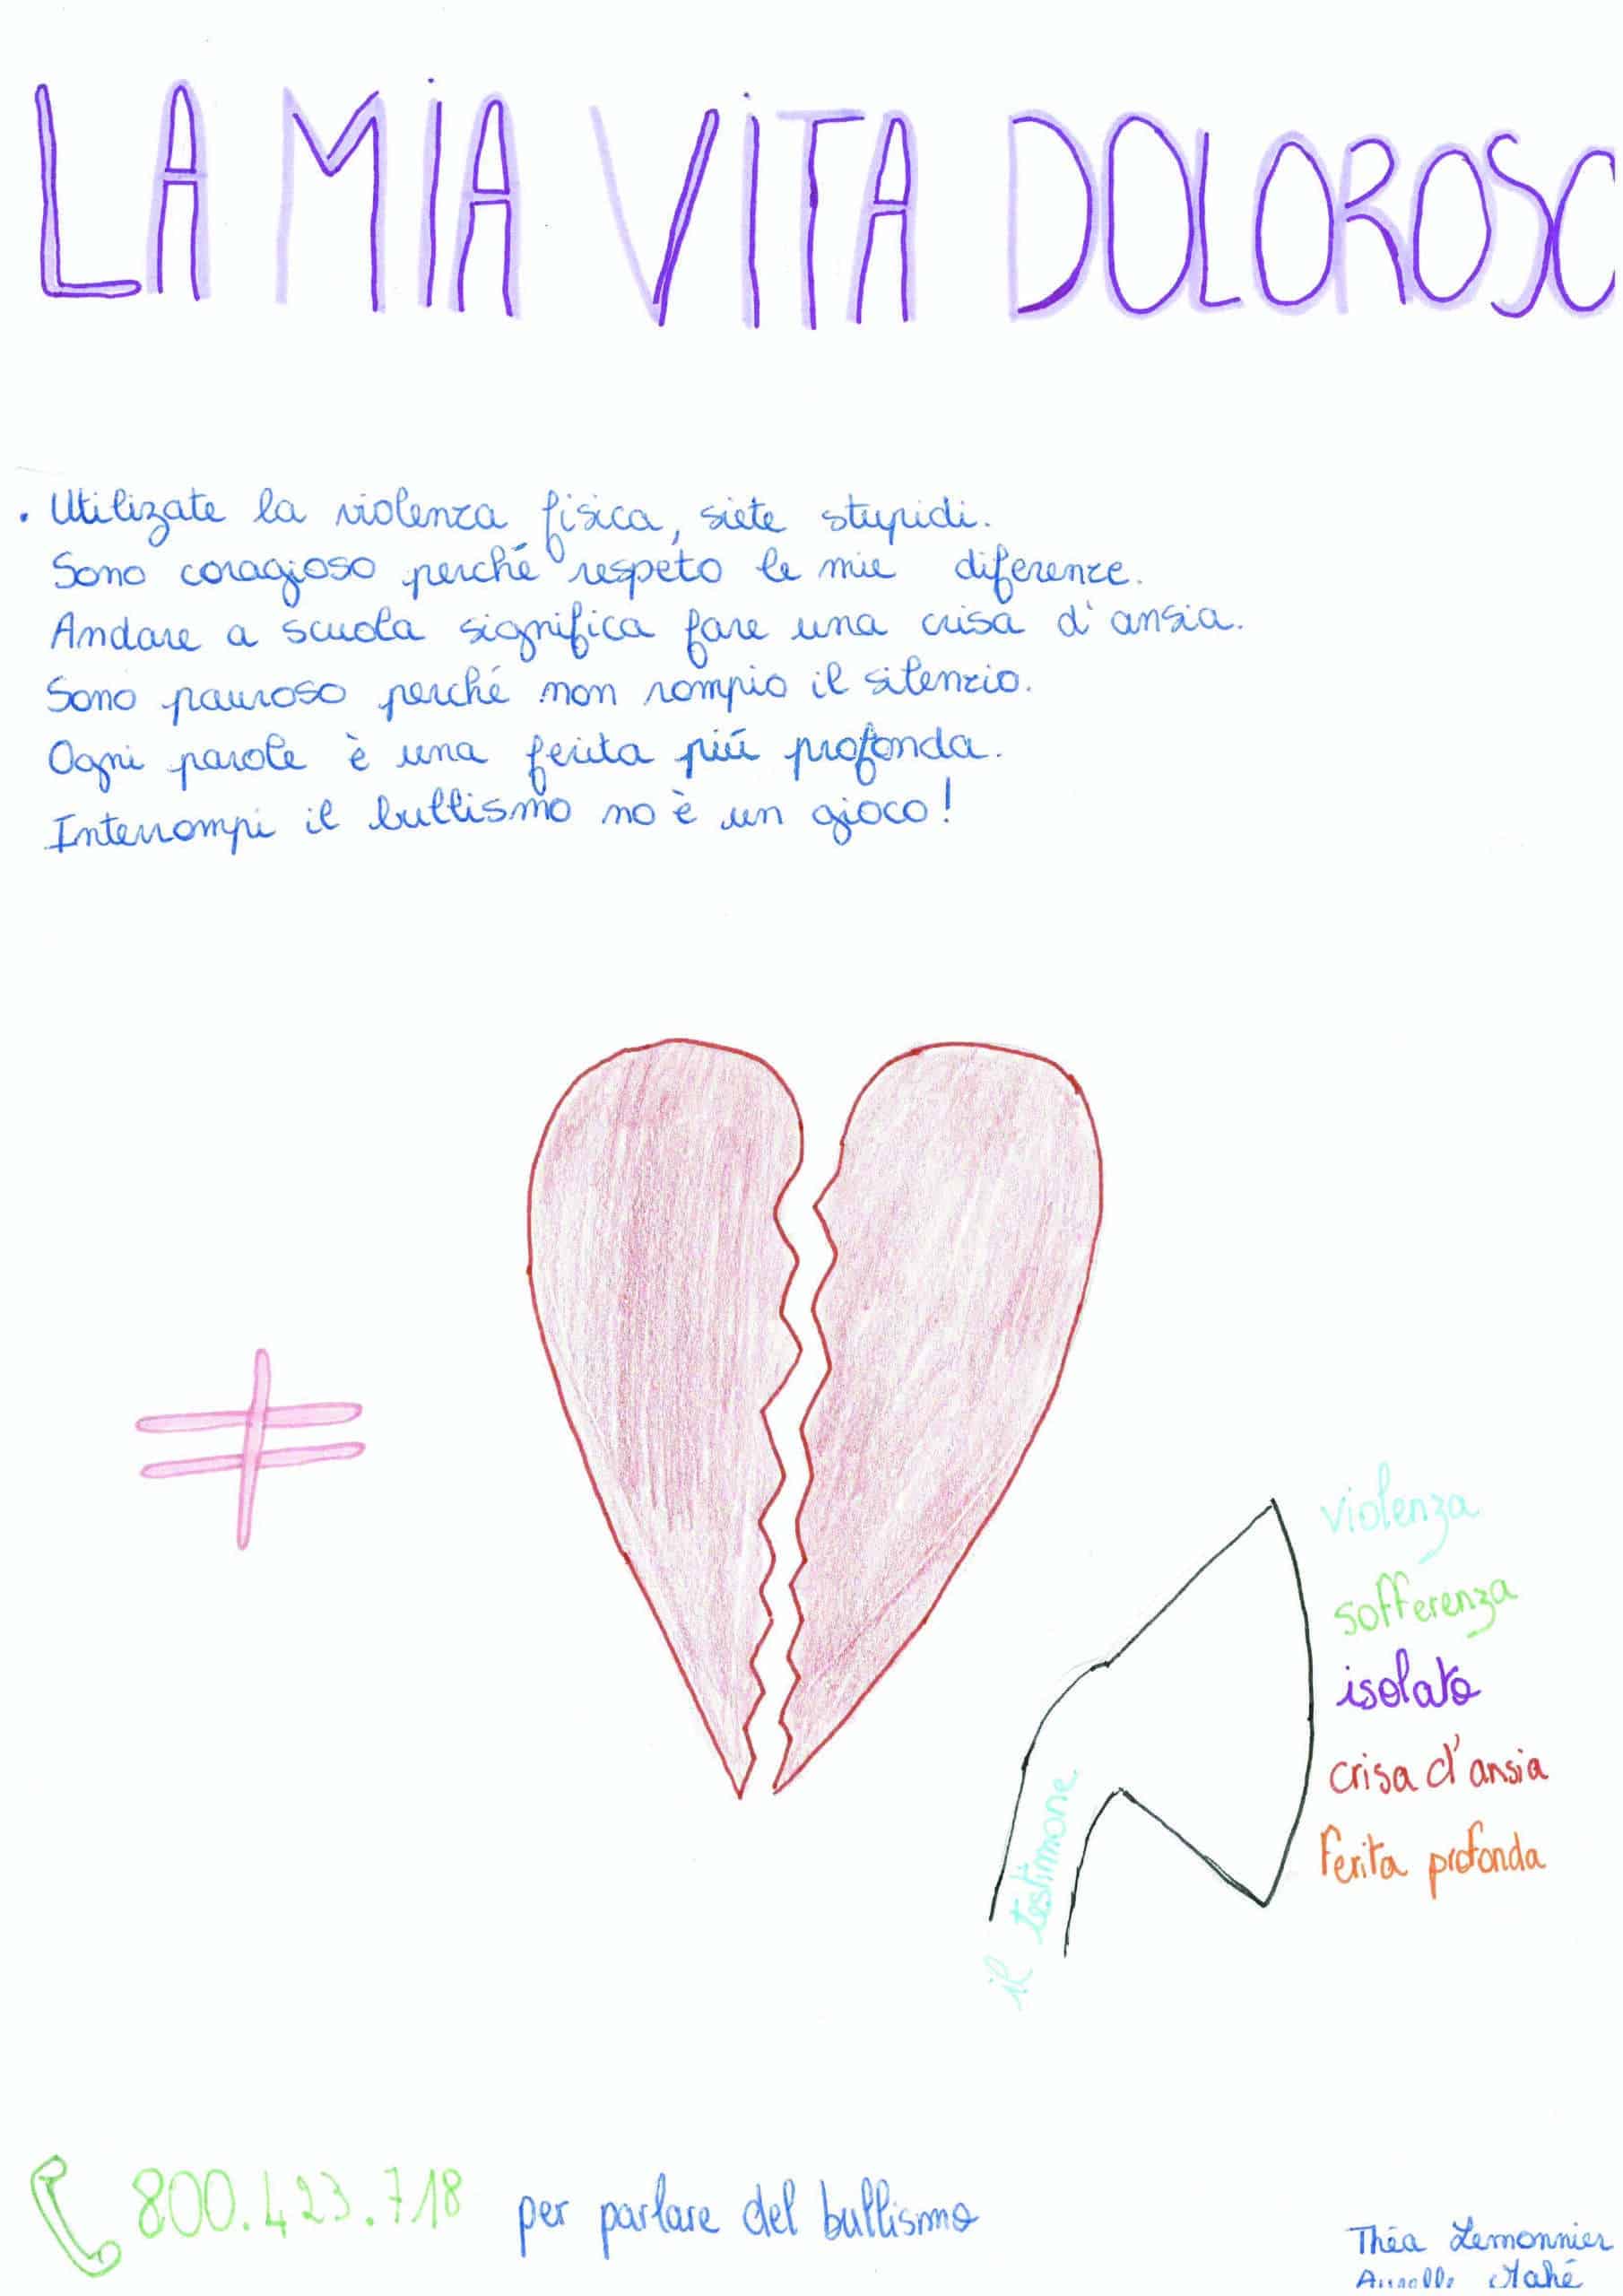 LA MIA VITA DOLOROSO
. Utilizate la violenza fisica, siete stupidi.
Sono coragioso perché respeto le mie diferenze.
Andare a scuola significa fare una crisa d'ansia.
Sono pauroso perché non rompio il silenzio.
Ogni parole è una ferita piú profonda.
Interrompi il bullismo no è un gioco!
violenza
sofferenza
isolato
crisa d'ansia
ferita profonda
il testimone
800.423.718 per parlare del bullismo
Théa Lemonnier
Mahé